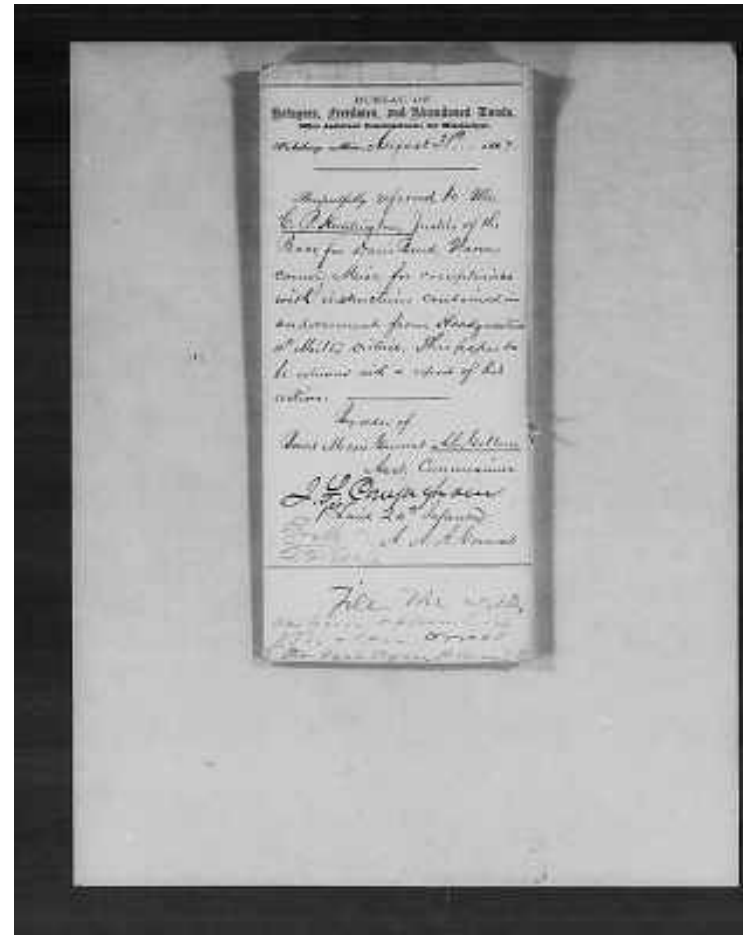 BUREAU OF
Refugees, Freedmen, and Abandoned Lands,
Office Assistant Commissioner, for Mississippi,
Vicksburg, Miss. August 31st 1867.
Respectfully referred to Mr
C. P. Huntington Justice of the
Peace for Davis Bend Warren
County Miss for compliance
with instructions contained in
endorsement from Headquarters
4th Milty District. This paper to
be returned with a report of his
action.
By order of
Brevet Major General A. C. Gillem
Asst. Commissioner
J. L.
1st Lieut 24th Infantry
A. A. A. General
File